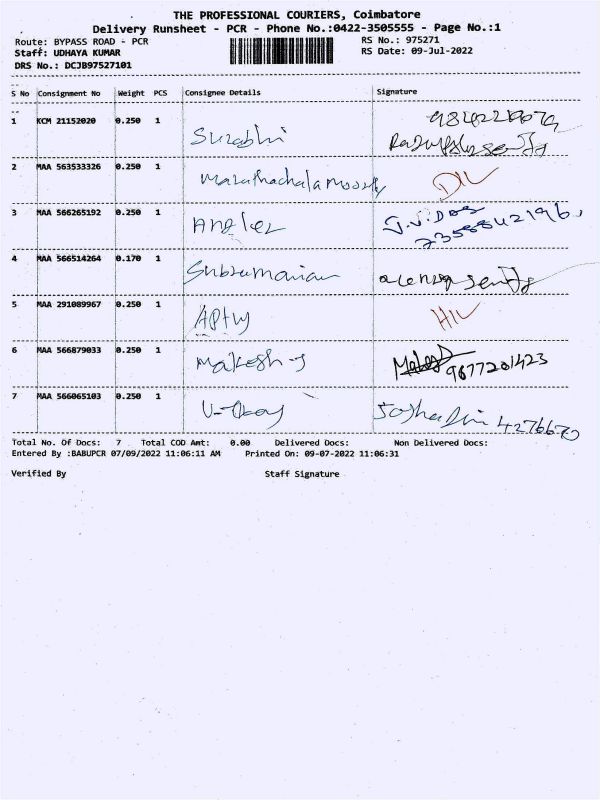 THE PROFESSIONAL COURIERS, Coimbatore
Delivery Runsheet - PCR - Phone No.:0422-3505555 - Page No.:1
Route: BYPASS ROAD - PCR
RS No.: 975271
Staff: UDHAYA KUMAR
RS Date: 09-Jul-2022
DRS No.: DCJB97527101
S No Consignment No Weight PCS Consignee Details Signature
1 KCM 21152020 0.250 1 Surabhi
2 MAA 563533326 0.250 1 Marathachalamoorthy
3 MAA 566265192 0.250 1 Angler
4 MAA 566514264 0.170 1 Subramanian
5 MAA 291089967 0.250 1
6 MAA 566879033 0.250 1 Makesh-J 9677201423
7 MAA 566065103 0.250 1 4276670
Total No. Of Docs: 7 Total COD Amt: 0.00 Delivered Docs: Non Delivered Docs:
Entered By :BABUPCR 07/09/2022 11:06:11 AM Printed On: 09-07-2022 11:06:31
Verified By Staff Signature